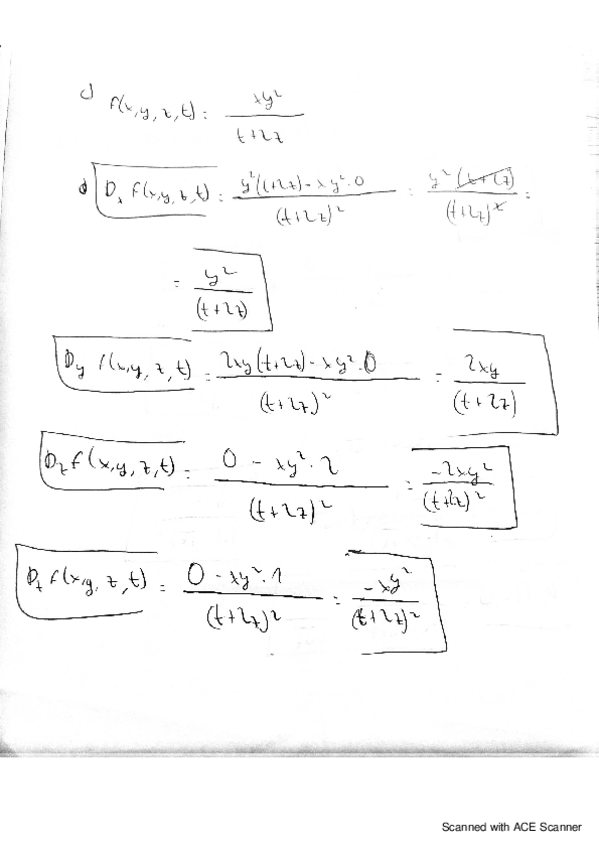 c) f(x,y,z,t) = \frac{xy^2}{t+2z}
D_x f(x,y,z,t) = \frac{y^2(t+2z) - xy^2·0}{(t+2z)^2} = \frac{y^2(t+2z)}{(t+2z)^2} =
= \frac{y^2}{(t+2z)}
D_y f(x,y,z,t) = \frac{2xy(t+2z) - xy^2·0}{(t+2z)^2} = \frac{2xy}{(t+2z)}
D_z f(x,y,z,t) = \frac{0 - xy^2·2}{(t+2z)^2} = \frac{-2xy^2}{(t+2z)^2}
D_t f(x,y,z,t) = \frac{0 - xy^2·1}{(t+2z)^2} = \frac{-xy^2}{(t+2z)^2}
Scanned with ACE Scanner